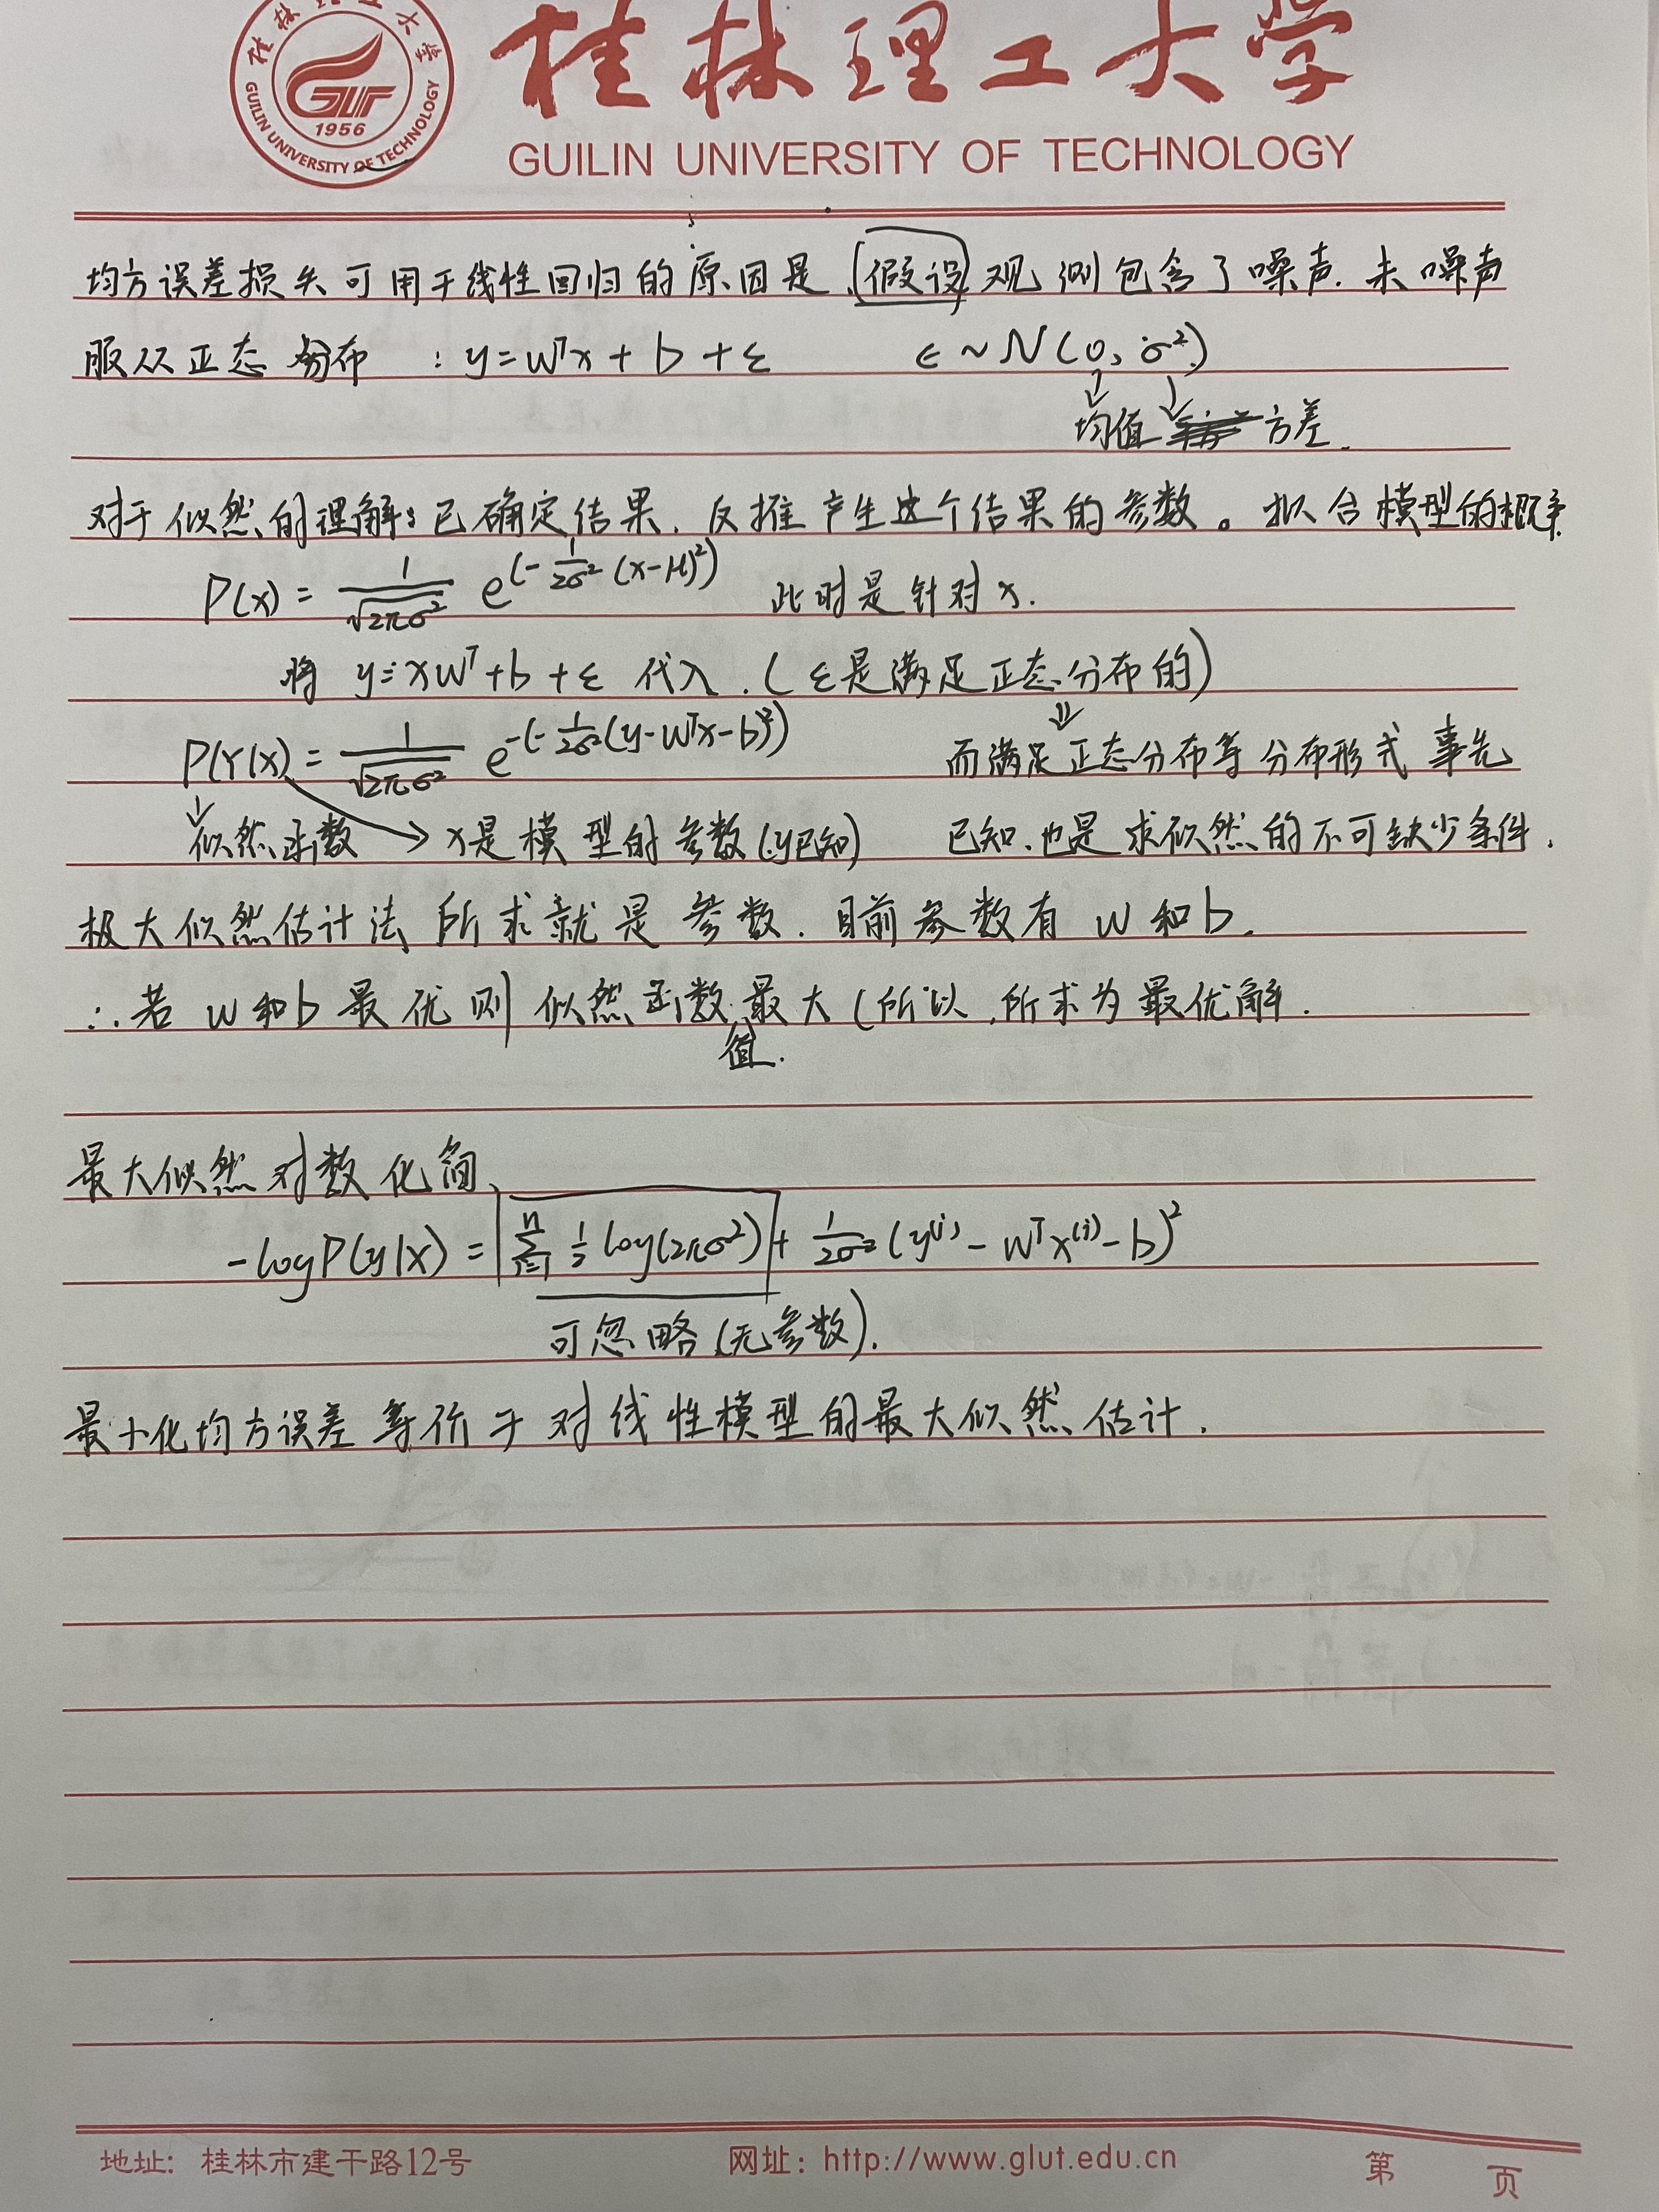 桂林理工大学
GUILIN UNIVERSITY OF TECHNOLOGY
1956
桂林理工大学
GUILIN UNIVERSITY OF TECHNOLOGY
均方误差损失可用于线性回归的原因是,(假设)观测包含了噪声.未噪声
服从正态分布 : y=wᵀx+b+ε ϵ~N(0, σ²)
均值 方差.
对于似然的理解:已确定结果.反推产生这个结果的参数。拟合模型的概率
P(x) = 1/√(2πσ²) e^(-1/2σ² (x-μ)²) 此时是针对x.
将 y=xwᵀ+b+ε 代入.(ε是满足正态分布的)
P(Y|X) = 1/√(2πσ²) e^-(-1/2σ²(y-wᵀx-b)²) 而满足正态分布等分布形式事先
似然函数 → x是模型的参数(y已知) 已知.也是求似然的不可缺少条件.
极大似然估计法,所求就是参数.目前参数有 w 和 b.
∴若 w 和 b 最优则似然函数值最大(所以,所求为最优解.
最大似然对数化简、
-logP(y|X) = ∑ⁿᵢ₌₁ 1/2 log(2πσ²) + 1/2σ² (y⁽ⁱ⁾ - wᵀx⁽ⁱ⁾ - b)²
可忽略(无参数).
最小化均方误差等价于对线性模型的最大似然估计.
地址: 桂林市建干路12号 网址: http://www.glut.edu.cn 第 页